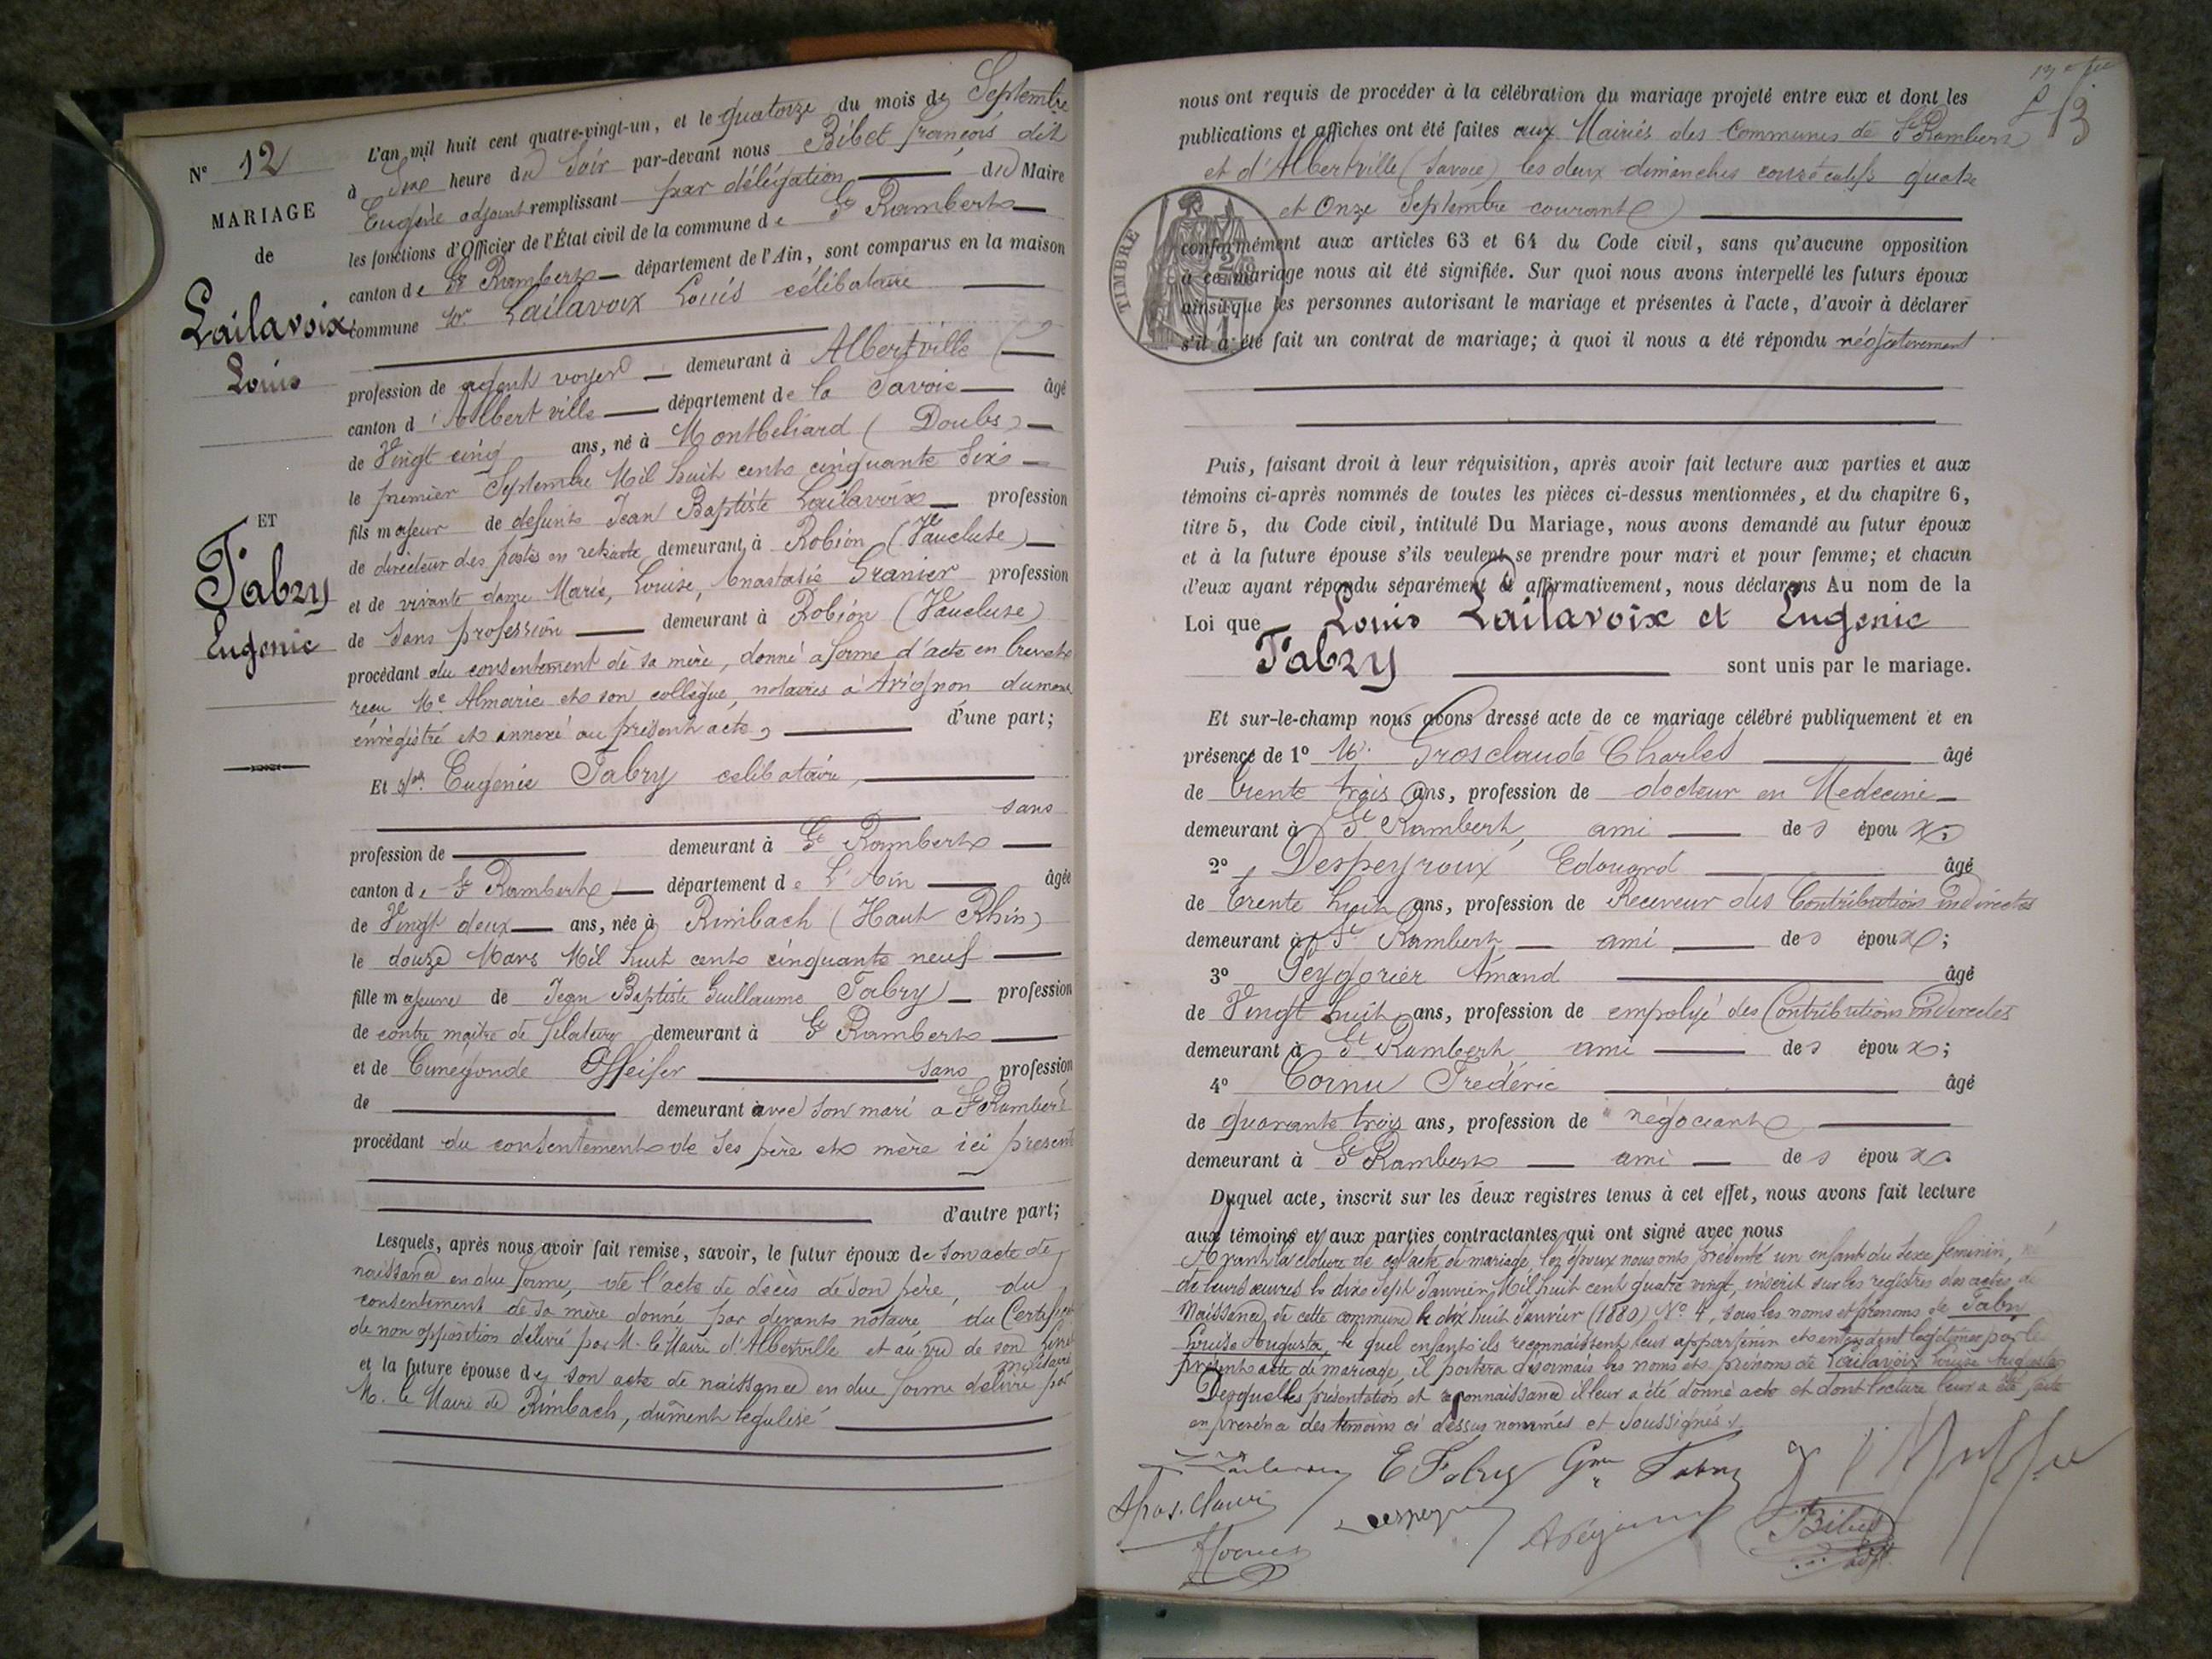 N° 12
MARIAGE
de
Lailavoix
Louis
ET
Fabry
Eugenie
L'an mil huit cent quatre-vingt-un, et le quatorze du mois de Septembre
à Six heure du Soir par-devant nous Bibet François dit
Eugène adjoint remplissant par délégation du Maire
les fonctions d'Officier de l'État civil de la commune de St Rambert
canton de St Rambert département de l'Ain, sont comparus en la maison
commune Mr Lailavoix Louis célibataire
profession de agent voyer demeurant à Albertville
canton d'Albertville département de la Savoie âgé
de Vingt cinq ans, né à Montbéliard (Doubs)
le premier Septembre Mil huit cent cinquante Six
fils majeur de defunt Jean Baptiste Lailavoix profession
de directeur des postes en retraite demeurant à Robion (Vaucluse)
et de vivante dame Marie, Louise, Anastasie Granier profession
de sans profession demeurant à Robion (Vaucluse)
procédant du consentement de sa mère, donné a forme d'acte en brevet
reçu Me Almaric et son collègue, notaires à Avignon dument
énrégistré et annexé au présent acte, d'une part;
Et Dlle Eugenie Fabry celibataire,
sans
profession de demeurant à St Rambert
canton de St Rambert département de L'Ain âgée
de Vingt deux ans, née à Rimbach (Haut Rhin)
le douze Mars Mil huit cent cinquante neuf
fille majeure de Jean Baptiste Guillaume Fabry profession
de contre maître de filature demeurant à St Rambert
et de Cunégonde Pffeifer sans profession
de demeurant avec son mari a St Rambert
procédant du consentement de ses père et mère ici present
d'autre part;
Lesquels, après nous avoir fait remise, savoir, le futur époux de son acte de
naissance en due forme, de l'acte de décès de son père, du
consentement de sa mère donné par devant notaire, du Certificat
de non opposition délivré par M. le Maire d'Albertville et au vu de son livret
militaire
et la future épouse de son acte de naissance en due forme delivré par
M. le Maire de Rimbach, dûment legalisé
nous ont requis de procéder à la célébration du mariage projeté entre eux et dont les
publications et affiches ont été faites aux Mairies des Communes de St Rambert
et d'Albertville (Savoie) les deux dimanches consécutifs quatre
et Onze Septembre courant
TIMBRE
conformément aux articles 63 et 64 du Code civil, sans qu'aucune opposition
à ce mariage nous ait été signifiée. Sur quoi nous avons interpellé les futurs époux
ainsi que les personnes autorisant le mariage et présentes à l'acte, d'avoir à déclarer
s'il a été fait un contrat de mariage; à quoi il nous a été répondu négativement
Puis, faisant droit à leur réquisition, après avoir fait lecture aux parties et aux
témoins ci-après nommés de toutes les pièces ci-dessus mentionnées, et du chapitre 6,
titre 5, du Code civil, intitulé Du Mariage, nous avons demandé au futur époux
et à la future épouse s'ils veulent se prendre pour mari et pour femme; et chacun
d'eux ayant répondu séparément et affirmativement, nous déclarons Au nom de la
Loi que Louis Lailavoix et Eugenie
Fabry sont unis par le mariage.
Et sur-le-champ nous avons dressé acte de ce mariage célébré publiquement et en
présence de 1° M. Grosclaude Charles âgé
de trente trois ans, profession de docteur en Medecine
demeurant à St Rambert, ami des époux;
2° Despeyroux Edouard âgé
de trente huit ans, profession de Receveur des Contributions indirectes
demeurant à St Rambert ami des époux;
3° Peygorier Amand âgé
de Vingt huit ans, profession de empolyé des Contributions indirectes
demeurant à St Rambert ami des époux;
4° Cornu Frédéric âgé
de quarante trois ans, profession de négociant
demeurant à St Rambert ami des époux.
Duquel acte, inscrit sur les deux registres tenus à cet effet, nous avons fait lecture
aux témoins et aux parties contractantes qui ont signé avec nous
Avant la cloture de cet acte de mariage, les époux nous ont présenté un enfant du sexe feminin, né
de leurs œuvres le dix Sept Janvier Mil huit cent quatre vingt, inscrit sur les registres des actes de
Naissance de cette commune le dix huit Janvier (1880) N° 4, sous les noms et prénoms de Fabry
Louise Augusta, le quel enfant ils reconnaissent leur appartenir et entendent légitimer par le
présent acte de mariage, il portera désormais les noms et prénoms de Lailavoix Louise Augusta
Desquelles présentation et reconnaissance il leur a été donné acte et dont lecture leur a été faite
en présence des temoins ci dessus nommés et soussignés.
E Fabry Gme Fabry
Bibet